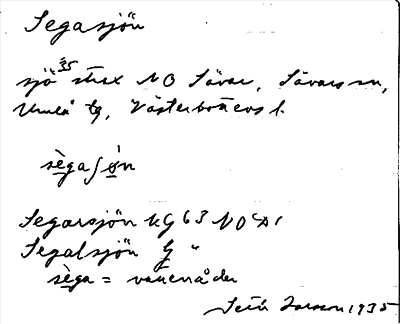 Segasjön
sjö 35 strax NO Sävar, Sävars sn,
Umeå tg, Västerbottens l.
sègaʃø̀n
Segarsjön KG 63 NO
Segalsjön G "
sèga = vattenåder
Larsson 1935